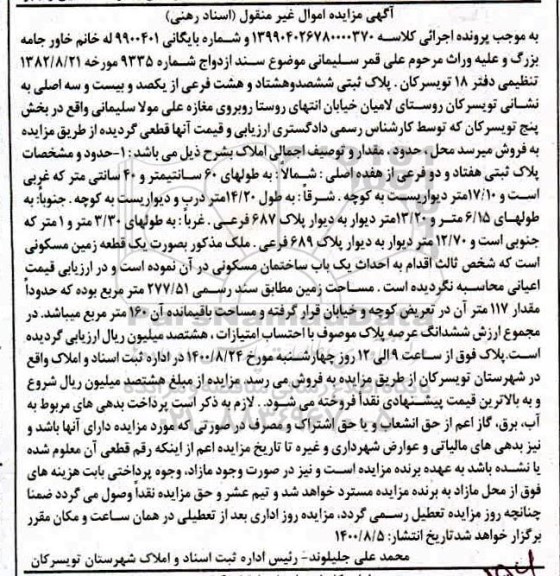 آگهی مزایده اموال غیر منقول (اسناد رهنی)
به موجب پرونده اجرائی کلاسه ۱۳۹۹۰۴۰۲۶۷۸۰۰۰۰۳۷۰ و شماره بایگانی ۹۹۰۰۴۰۱ له خانم خاور جامه
بزرگ و علیه وراث مرحوم علی قمر سلیمانی موضوع سند ازدواج شماره ۹۳۳۵ مورخه ۱۳۸۲/۸/۲۱
تنظیمی دفتر ۱۸ تویسرکان . پلاک ثبتی ششصدوهشتاد و هشت فرعی از یکصد و بیست و سه اصلی به
نشانی تویسرکان روستای لامیان خیابان انتهای روستا روبروی مغازه علی مولا سلیمانی واقع در بخش
پنج تویسرکان که توسط کارشناس رسمی دادگستری ارزیابی و قیمت آنها قطعی گردیده از طریق مزایده
به فروش میرسد محل ،حدود، مقدار و توصیف اجمالی املاک بشرح ذیل می باشد: ۱-حدود و مشخصات
پلاک ثبتی هفتاد و دو فرعی از هفده اصلی : شمالا : به طولهای ۶۰ سانتیمتر و ۴۰ سانتی متر که غربی
است و ۱۷/۱۰ متر دیواریست به کوچه . شرقاً : به طول ۱۴/۲۰ متر درب و دیواریست به کوچه . جنوباً: به
طولهای ۶/۱۵ متر و ۱۳/۲۰ متر دیوار به دیوار پلاک ۶۸۷ فرعی . غرباً : به طولهای ۳/۳۰ متر و ۱ متر که
جنوبی است و ۱۲/۷۰ متر دیوار به دیوار پلاک ۶۸۹ فرعی . ملک مذکور بصورت یک قطعه زمین مسکونی
است که شخص ثالث اقدام به احداث یک باب ساختمان مسکونی در آن نموده است و در ارزیابی قیمت
اعیانی محاسبه نگردیده است . مساحت زمین مطابق سند رسمی ۲۷۷/۵۱ متر مربع بوده که حدوداً
مقدار ۱۱۷ متر آن در تعریض کوچه و خیابان قرار گرفته و مساحت باقیمانده آن ۱۶۰ متر مربع میباشد. در
مجموع ارزش ششدانگ عرصه پلاک موصوف با احتساب امتیازات ، هشتصد میلیون ریال ارزیابی گردیده
است.پلاک فوق از ساعت ۹ الی ۱۲ روز چهارشنبه مورخ ۱۴۰۰/۸/۲۴ در اداره ثبت اسناد و املاک واقع
در شهرستان تویسرکان از طریق مزایده به فروش می رسد. مزایده از مبلغ هشتصد میلیون ریال شروع
و به بالاترین قیمت پیشنهادی نقداً فروخته می شود. . لازم به ذکر است پرداخت بدهی های مربوط به
آب، برق، گاز اعم از حق انشعاب و یا حق اشتراک و مصرف در صورتی که مورد مزایده دارای آنها باشد و
نیز بدهی های مالیاتی و عوارض شهرداری و غیره تا تاریخ مزایده اعم از اینکه رقم قطعی آن معلوم شده
یا نشده باشد به عهده برنده مزایده است و نیز در صورت وجود مازاد، وجوه پرداختی بابت هزینه های
فوق از محل مازاد به برنده مزایده مسترد خواهد شد و نیم عشر و حق مزایده نقداً وصول می گردد ضمنا
چنانچه روز مزایده تعطیل رسمی گردد، مزایده روز اداری بعد از تعطیلی در همان ساعت و مکان مقرر
برگزار خواهد شدتاریخ انتشار: ۱۴۰۰/۸/۵
محمد علی جلیلوند- رئیس اداره ثبت اسناد و املاک شهرستان تویسرکان